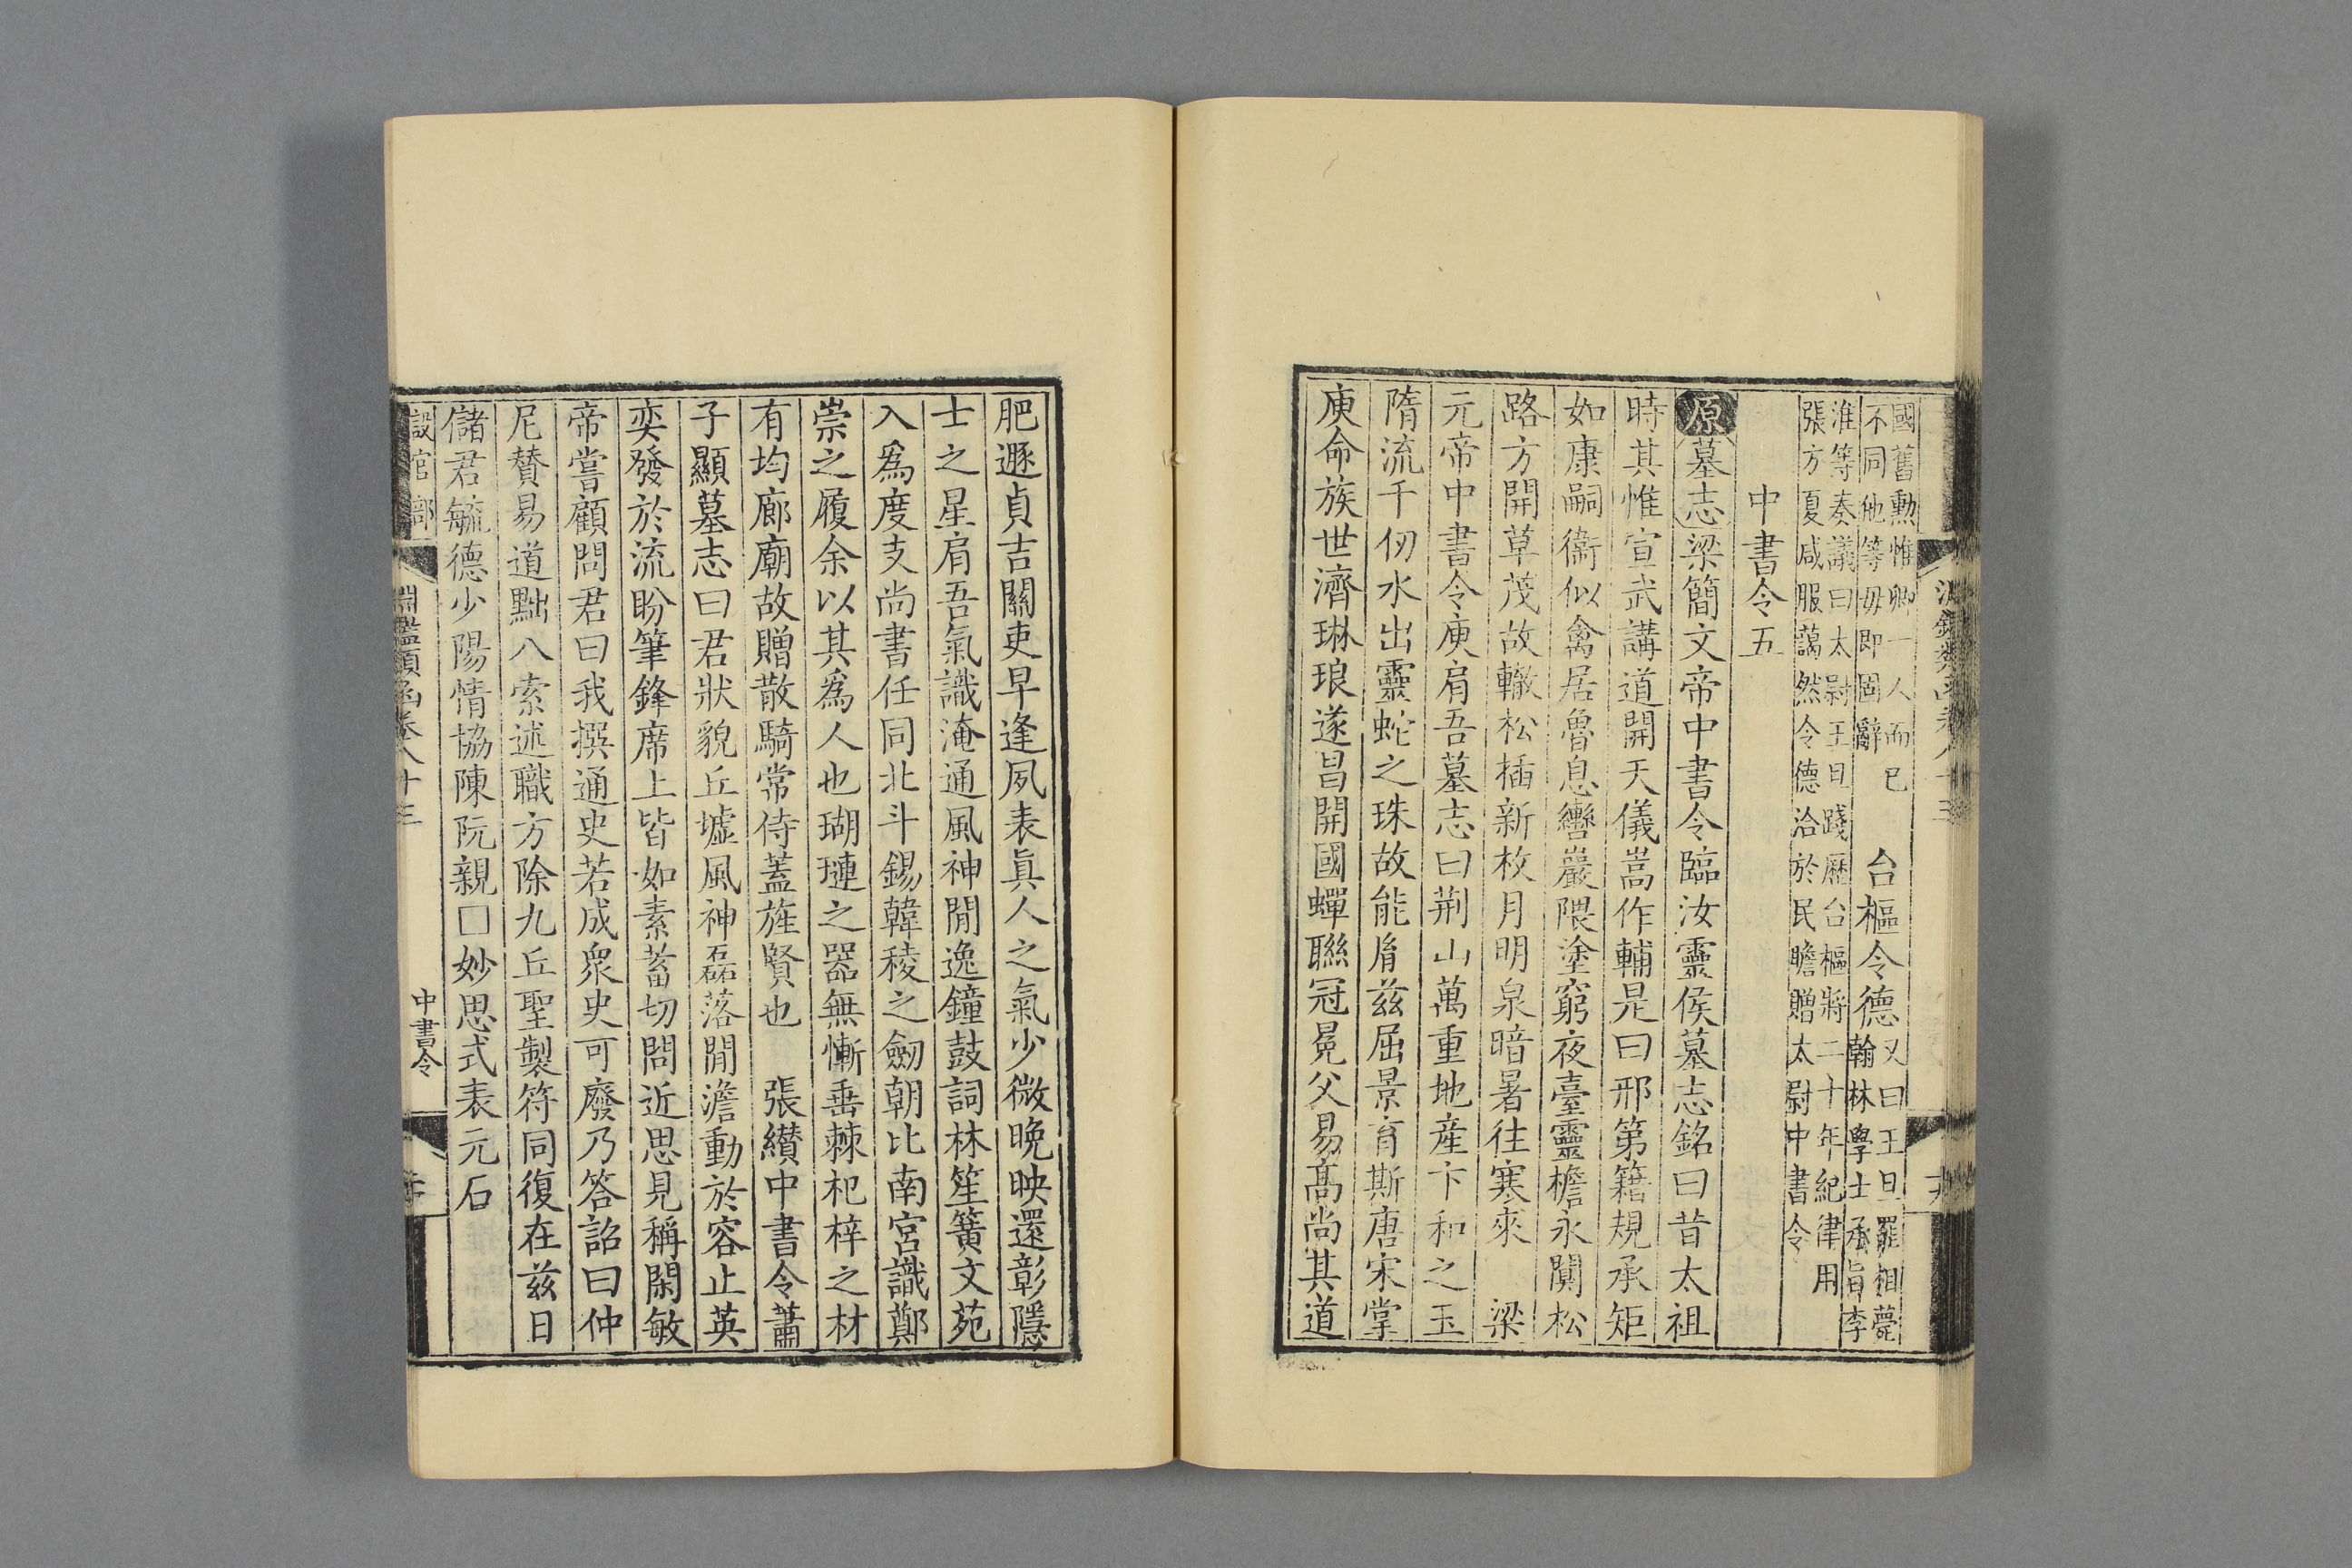 國舊勲惟卿一人而已
不同他等毋即固辭
台樞令德
又曰王旦罷相薨
翰林學士承旨李
淮等奏議曰太尉王旦踐歷台樞將二十年紀律用
張方夏咸服藹然令德洽於民瞻贈太尉中書令
中書令五
原墓志梁簡文帝中書令臨汝靈侯墓志銘曰昔太祖
時其惟宣武講道開天儀嵩作輔是曰邢第籍規承矩
如康嗣衞似禽居魯息轡巖隈塗窮夜臺靈檐永闃松
路方開草茂故轍松插新枚月明泉暗暑往寒來 梁
元帝中書令庾肩吾墓志曰荆山萬重地産卞和之玉
隋流千仞水出靈蛇之珠故能胤茲屈景育斯唐宋掌
庾命族世濟琳琅遂昌開國蟬聯冠冕父易髙尚其道
肥遯貞吉關吏早逢夙表眞人之氣少微晚映還彰隱
士之星肩吾氣識淹通風神閒逸鐘鼓詞林笙簧文苑
入爲度支尚書任同北斗錫韓稜之劒朝比南宮識鄭
崇之履余以其爲人也瑚璉之器無慚垂棘杞梓之材
有均廊廟故贈散騎常侍蓋旌賢也 張纘中書令蕭
子顯墓志曰君狀貌丘墟風神磊落閒澹動於容止英
奕發於流盼筆鋒席上皆如素蓄切問近思見稱閑敏
帝嘗顧問君曰我撰通史若成衆史可廢乃答詔曰仲
尼贊易道黜八索述職方除九丘聖製符同復在兹日
儲君毓德少陽情協陳阮親□妙思式表元石
設官部 淵鑑類函卷八十三 中書令